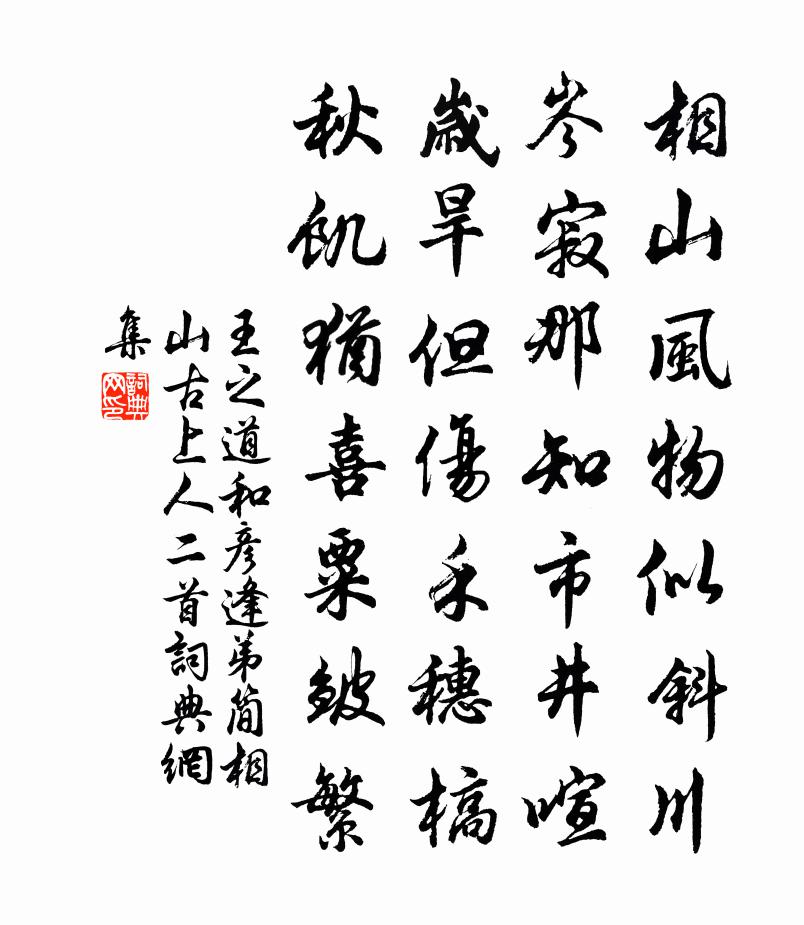 相山風物似斜川
岑寂那知市井喧
歲旱但傷禾穗槁
秋飢猶喜粟皱繁
王之道和彦逢弟簡相
山古上人二首詞典網
集
詞典網印